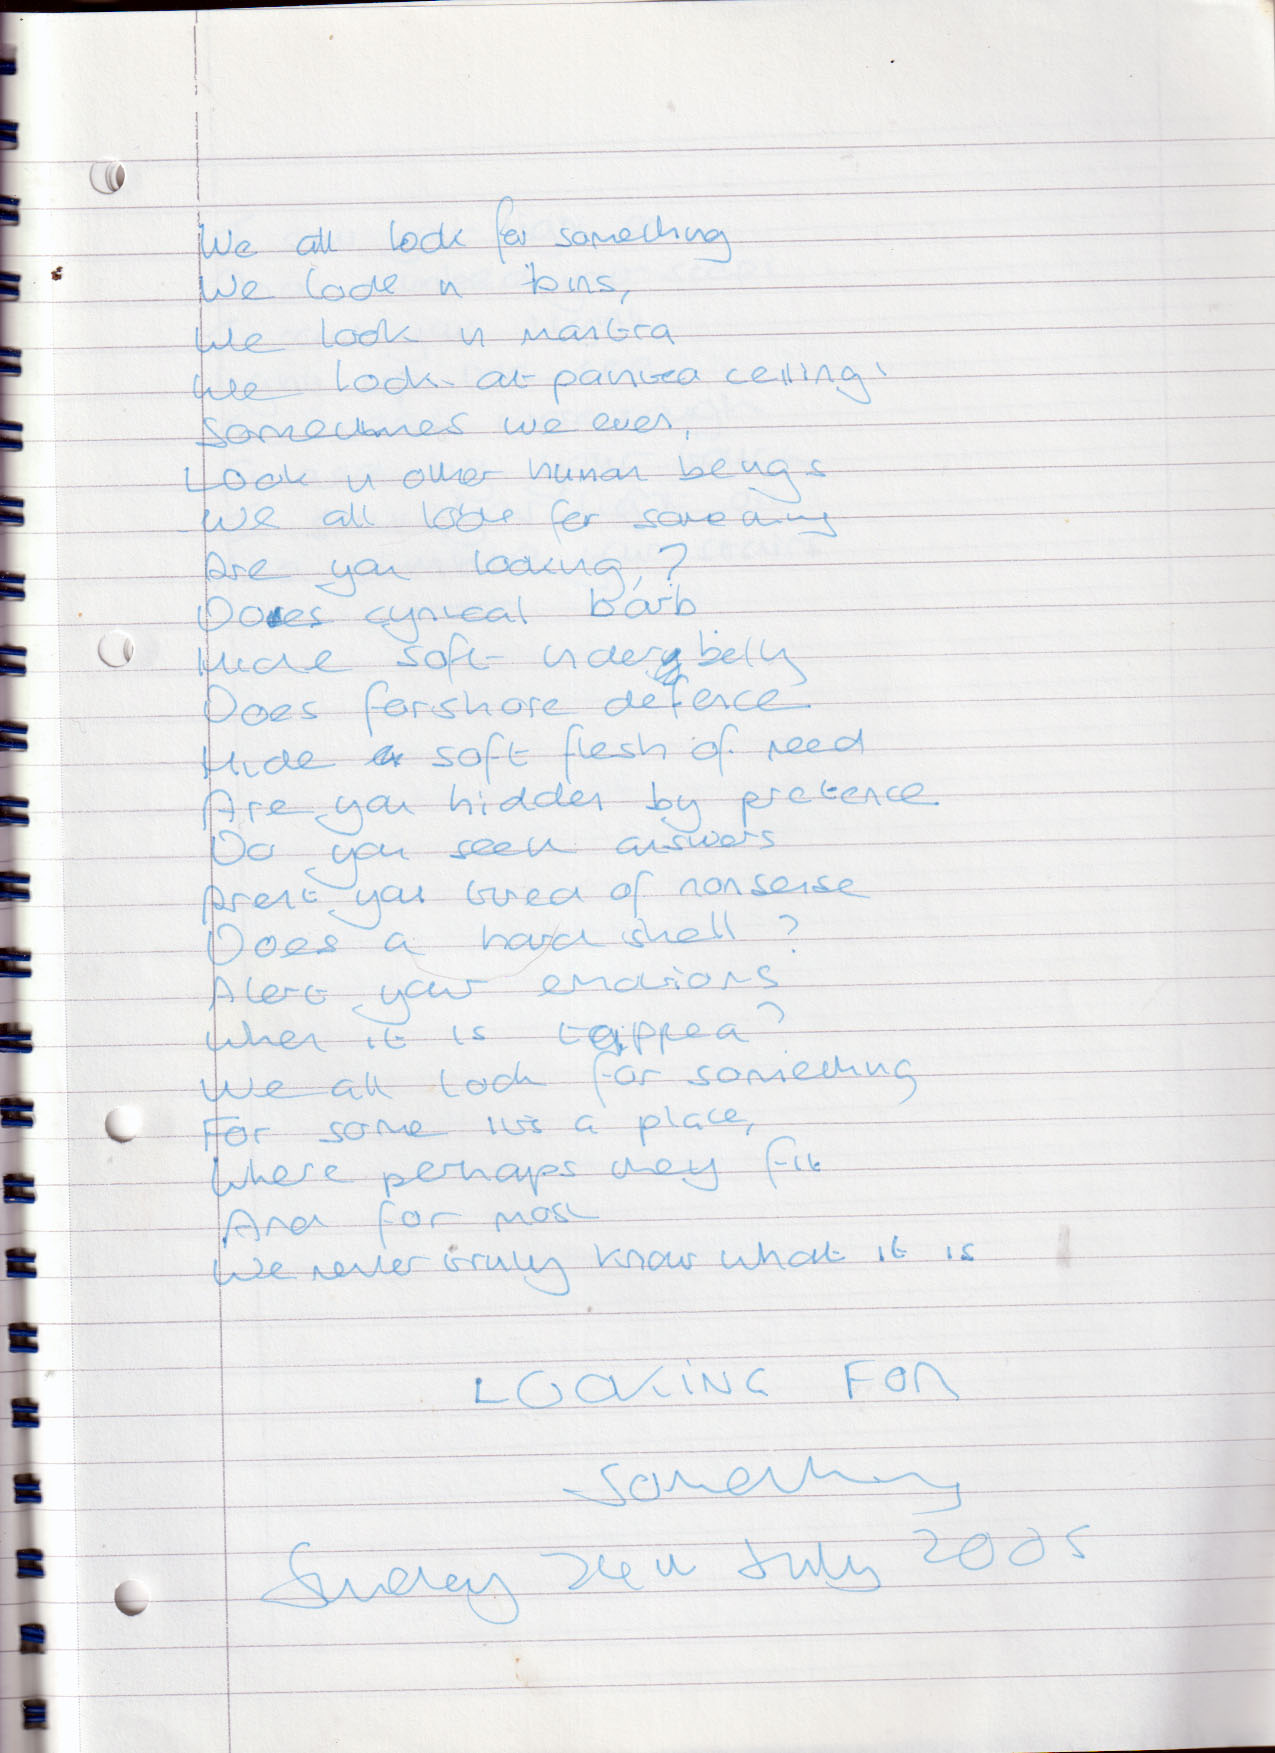 We all look for something
We look in bins,
We look in mantra
We look at painted ceiling,
Sometimes we even,
Look in other human beings
We all look for something
Are you looking,?
Does cynical barb
Hide soft underbelly
Does forshore defence
Hide soft flesh of need
Are you hidden by pretence
Do you seek answers
Arent you tired of nonsense
Does a hard shell?
Alert your emotions
When it is tapped?
We all look for something
For some its a place,
Where perhaps they fit
And for most
We never truly know what it is
LOOKING FOR
something
Sunday 24th July 2005